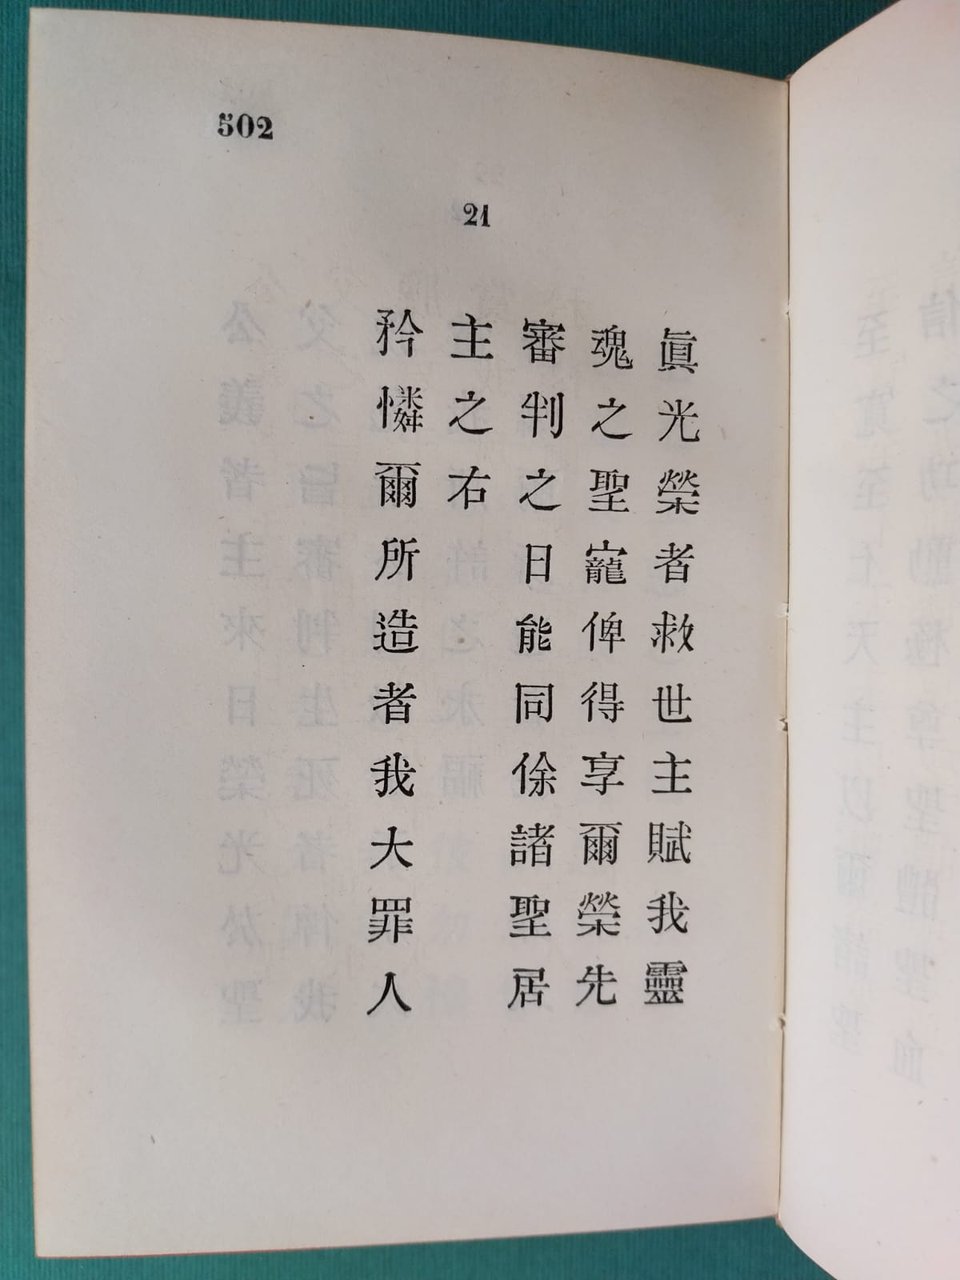 502
21
眞光榮者救世主賦我靈
魂之聖寵俾得享爾榮先
審判之日能同俆諸聖居
主之右
矜憐爾所造者我大罪人